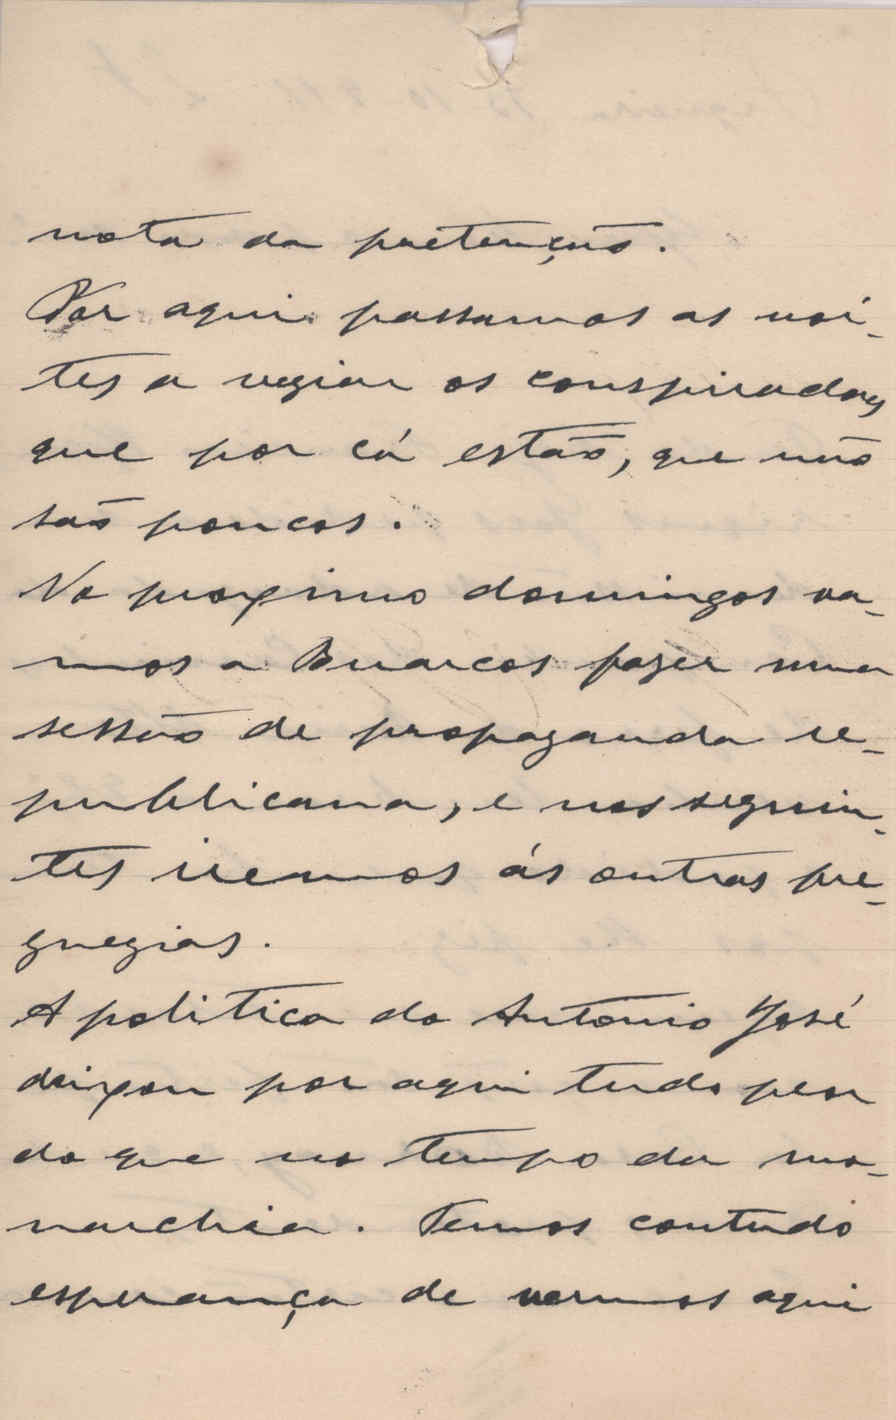 nota da pretenção.
Por aqui passamos as noi-
tes a vegiar os conspiradores
que por cá estão, que não
são poucos.
No proximo domingos va-
mos a Buarcos fazer uma
sessão de propaganda re-
publicana, e nos seguin-
tes iremos ás outras fre-
guezias.
A politica do Antonio José
deixou por aqui tudo peor
do que no tempo da mo-
narchia. Temos contudo
esperança de vermos aqui